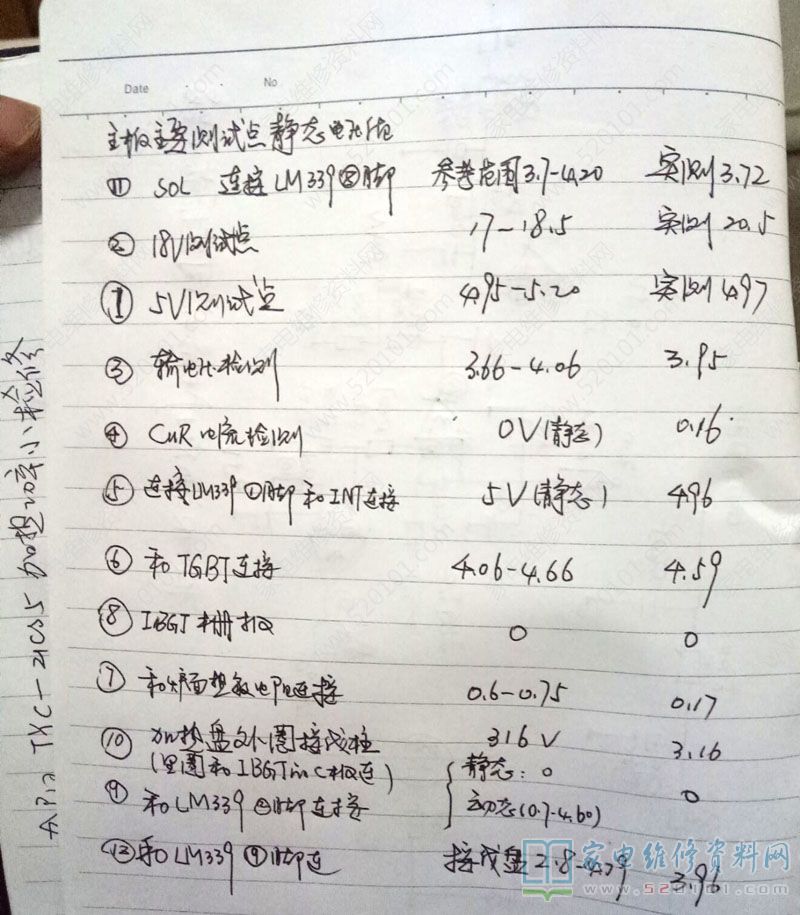 Date No
主板主要测试点静态电压值
⑪ SOL 连接LM339⑧脚 参考范围3.7-4.20 实测3.72
② 18V测试点 17-18.5 实测20.5
① 5V测试点 4.95-5.20 实测4.97
③ 输电压检测 3.66-4.06 3.95
④ CUR电流检测 0V(静态) 0.16
⑤ 连接LM339①脚和INT连接 5V(静态) 4.96
⑥ 和IGBT连接 4.06-4.66 4.59
⑧ IBGT栅极 0 0
⑦ 和炉面热敏电阻连接 0.6-0.75 0.17
⑩ 加热盘外圈接线柱 316V 3.16
(里圈和IBGT的C极连) 静态:0
⑨ 和LM339 脚连接 动态(0.7-4.60) 0
⑫ 和LM339⑨脚连 接线盘2.8-4.79 3.96
TXC-21CS5加热功率小检修
家电维修资料网
www.520101.com